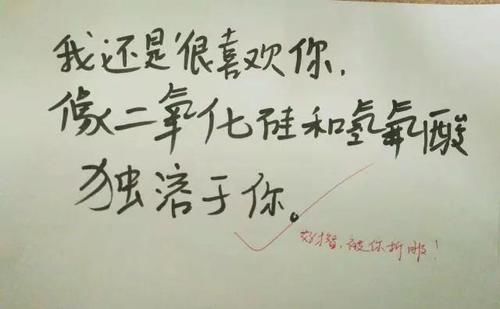 我还是很喜欢你，
像二氧化硅和氢氟酸
独溶于你。
好撩，被你折服！